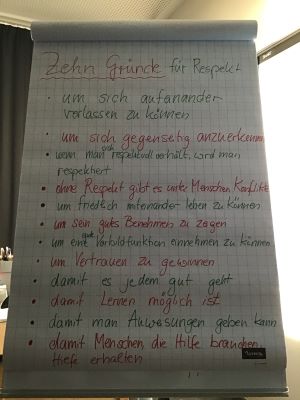 Zehn Gründe für Respekt
· um sich aufeinander
verlassen zu können
· um sich gegenseitig anzuerkennen
· wenn man sich respektvoll verhält, wird man
respektiert
· ohne Respekt gibt es unter Menschen Konflikte
· um friedlich miteinander leben zu können
· um sein gutes Benehmen zu zeigen
· um eine gute Vorbildfunktion einnehmen zu können
· um Vertrauen zu gewinnen
· damit es jedem gut geht
· damit Lernen möglich ist
· damit man Anweisungen geben kann
· damit Menschen die Hilfe brauchen,
Hilfe erhalten